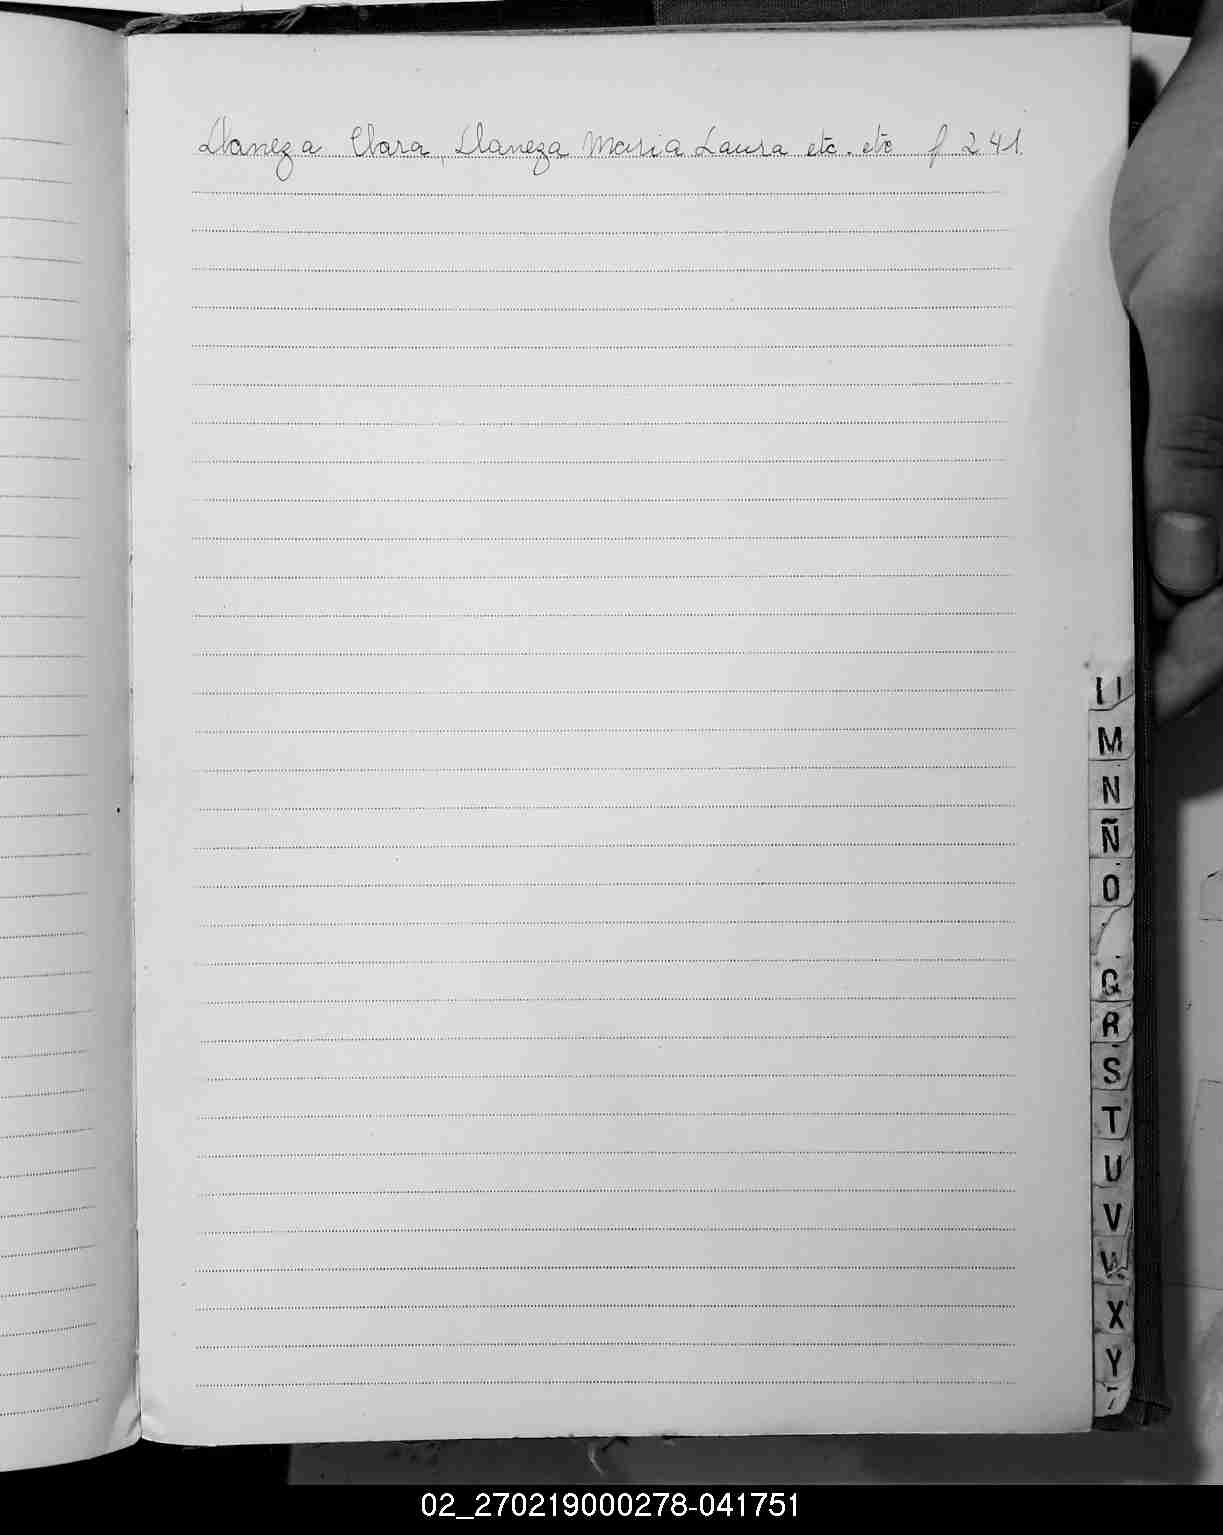 Llaneza Clara, Llaneza Maria Laura etc. etc f 241
Ll
M
N
Ñ
O
Q
R
S
T
U
V
W
X
Y
02_270219000278-041751